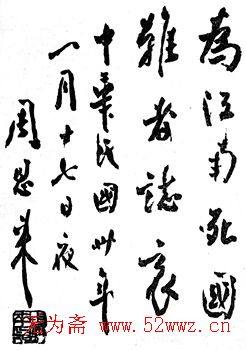 為江南死國
難者誌哀
中華民國卅年
一月十七日夜
周恩来
勇为斋 www.52wwz.cn